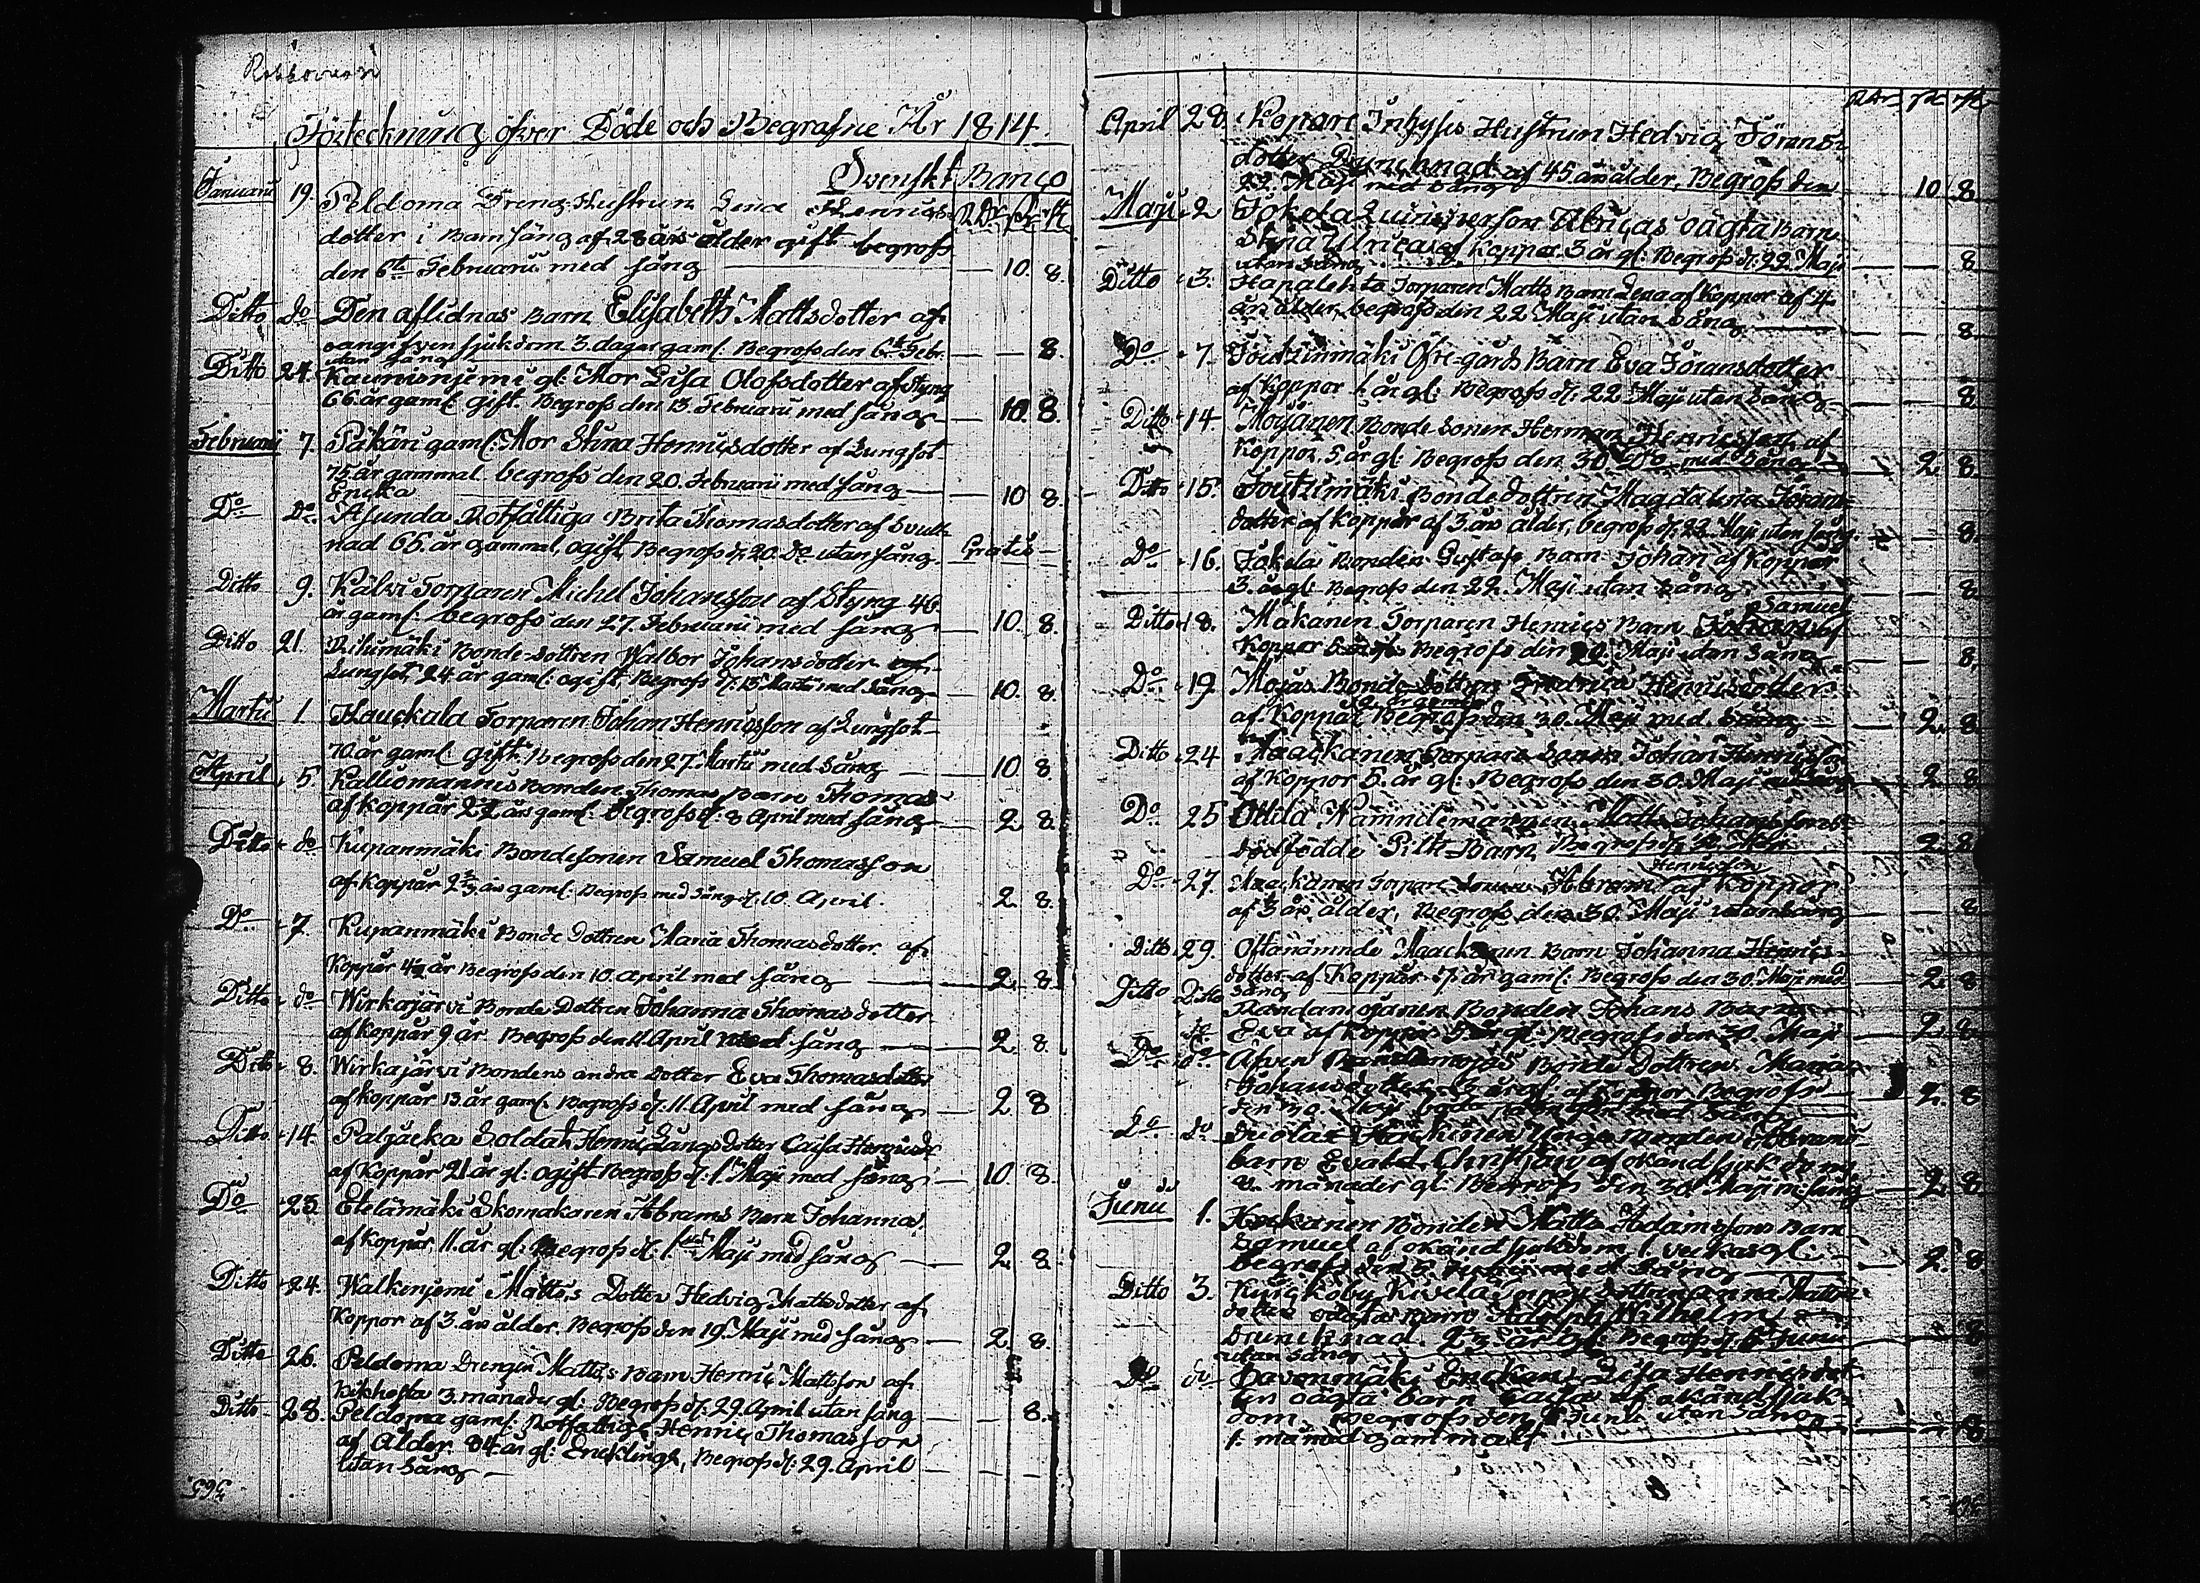 Förteckning öfver Döde och Begrafne År 1814.
Svenskt Banco
Januarii 19. Peldoma Dreng Hustrun Lena Henrics R:dr ß rst
dotter i Barnsäng af 28 års ålder gift begrofs
den 6te Februarii med sång 10. 8.
Ditto do Den aflidnas Barn Elisabeth Mattsdotter af
oangifven sjukdom 3 dagar gaml. Begrofs den 6te Febr.
utan sång 8.
Ditto 24. Kaunisnjemi gl: Mor Lisa Olofsdotter af Styng
66 år gaml gift. Begrofs den 13. Februarii med sång 10. 8.
Februarii 7. Päkäri gaml: Mor Stina Henricsdotter af Lungsot
75 år gammal begrofs den 20. Februarii med sång 10 8.
Encka
Do Do Asunda Rotfattiga Brita Thomasdotter af Svull-
nad 66. år gammal, ogift, Begrofs d. 20. Do utan sång. Gratis
Ditto 9. Kälvi Torparen Michel Johansson af Styng 46
år gaml: begrofs den 27. Februarii med sång 10. 8.
Ditto 21. Rihimäki Bonde-dottren Walbor Johansdotter af
Lungsot, 24 år gaml: ogift Begrofs d: 13 Martii med sång 10. 8
Martii 1 Hauckala Torparen Johan Henricsson af Lungsot
70 år gaml gift. Begrofs den 27. Martii med sång 10 8.
April 5 Kalliomannis Bonden Thomas Barn Thomas
af koppår 2½ års gaml: Begrofs d: 8 April med sång 2 8.
Ditto do Kupanmäki Bondesonen Samuel Thomasson
af koppår 2 års gaml. Begrofs med sång d. 10. April. 2. 8.
Do 7. Kupanmäki Bonde Dottren Maria Thomasdotter af
Koppår 4½ år Begrofs den 10. April med sång 2. 8.
Ditto do Wirkajärvi Bonde Dottren Johanna Thomasdotter
af koppår 9 år Begrofs den 11. April med sång 2. 8.
Ditto 8. Wirkajärvi Bondens andra dotter Eva Thomasdotter
af koppår 13 år gaml. Begrofs d. 11. April med sång 2 8
Ditto 14. Paljacka Soldat Henric Långs dotter Caisa Henricsdr
af Koppår 21 år gl: ogift Begrofs d. 1. Maji med sång 10. 8.
Do 23. Etelämäki Skomakaren Abrams Barn Johanna
af Koppår 11. år gl: Begrofs d: 1sta Maji med sång 2. 8.
Ditto 24. Walkenjemi Mattes Dotter Hedvig Mattsdotter af
Koppor af 3. års ålder. Begrofs den 19. Maji med sång 2. 8.
Ditto 26. Peldoma Drengen Mattes Barn Henric Mattsson af
kikhosta 3. månader gl: Begrofs d: 29. April utan sång 8.
Ditto 28. Peldoma gaml: Rotfattige Henric Thomasson
af Ålder 84. år gl: Encklingt, Begrofs d: 29. April
utan sång
R:dr ß rst
April 28. Hustrun Hedvig Jörans-
dotter af 45. års ålder, Begrofs den
22. Maji med sång 10. 8.
Maji 2 Jokela oägta Barn
Stina Ulrica af Koppor 3 år gl: Begrofs d. 22. Maji
utan sång 8
Ditto 3. Hapalehto Torparen Matts Barn Lena af Koppor af 4.
års ålder, begrofs den 22 Maji utan sång 8
Do 7 Joutzinmäki Öfre-gårds Barn Eva Jöransdotter
af Koppor 1 år gl: Begrofs d: 22 Maji utan sång 8
Ditto 14 Bonde Sonen Herman Henricsson af
Koppor, 5. år gl: Begrofs den 30 Do med sång 2. 8.
Ditto 15. Joutzimäki Bonde dottren Magdalena Jörans-
dotter af Koppor af 3. års ålder, begrofs d: 22. Maji utan sång 8.
Do 16. Jokela Bonden Gustafs Barn Johan af Koppor
3. år gl: Begrofs den 22. Maji utan sång 8.
Samuel
Ditto 18. Makanen Torparen Henrics Barn af
Koppor Begrofs den 22 Maji utan sång 8.
Do 19. Mojas Bonde dottren Fredrica Henricsdotter
af Koppor Begrofs den 30. Maji med sång 2. 8
Ditto 24 Maackanen Torpare Sonen Johan Henricsson
af Koppor 5. år gl: Begrofs den 30. Maji 2 8
Do 25 Ottila Nämndemannen Matts Johanssons
dödfödde Pilt-Barn, Begrofs d. 30. Maji 2. 8
Henricsson
Do 27. Maackanen Torpare Sonen Abram af Koppor
af 3 års ålder, Begrofs den 30. Maji utan sång 8
Ditto 29. Oftanämnde Maackanen Barn Johanna Henrics-
dotter af Koppår år gaml: Begrofs den 30. Maji med
sång 2. 8
Ditto Ditto Bonden Johans Barn
Eva af Koppor år gl. Begrofs den 30. Maji 2. 8
Do do Bonde Dottren Maria
Johansdotter år gl: af Koppor Begrofs
den 30. Maji med sång 2. 8
Do do Bonden Abrams
barn Evald Christian af okänd sjukdom
8. månader gl: Begrofs den 30. Maji m. sång 2. 8
Junii 1. Bonden Matts Adamssons Barn
Samuel af okänd sjukdom 1. veckas gl:
begrofs den 5. Junii med sång 2. 8
Ditto 3. Kivelä dottren Anna Matts-
dotter oägta barn Adolph Wilhelm
år gl: Begrofs d. Junii
utan sång 8
Do do Savonmäki Enckan Lisa Henricsdot-
ters oägta barn Caisa af okänd sjuk-
dom, Begrofs den Junii utan sång
1. månad gammalt 8